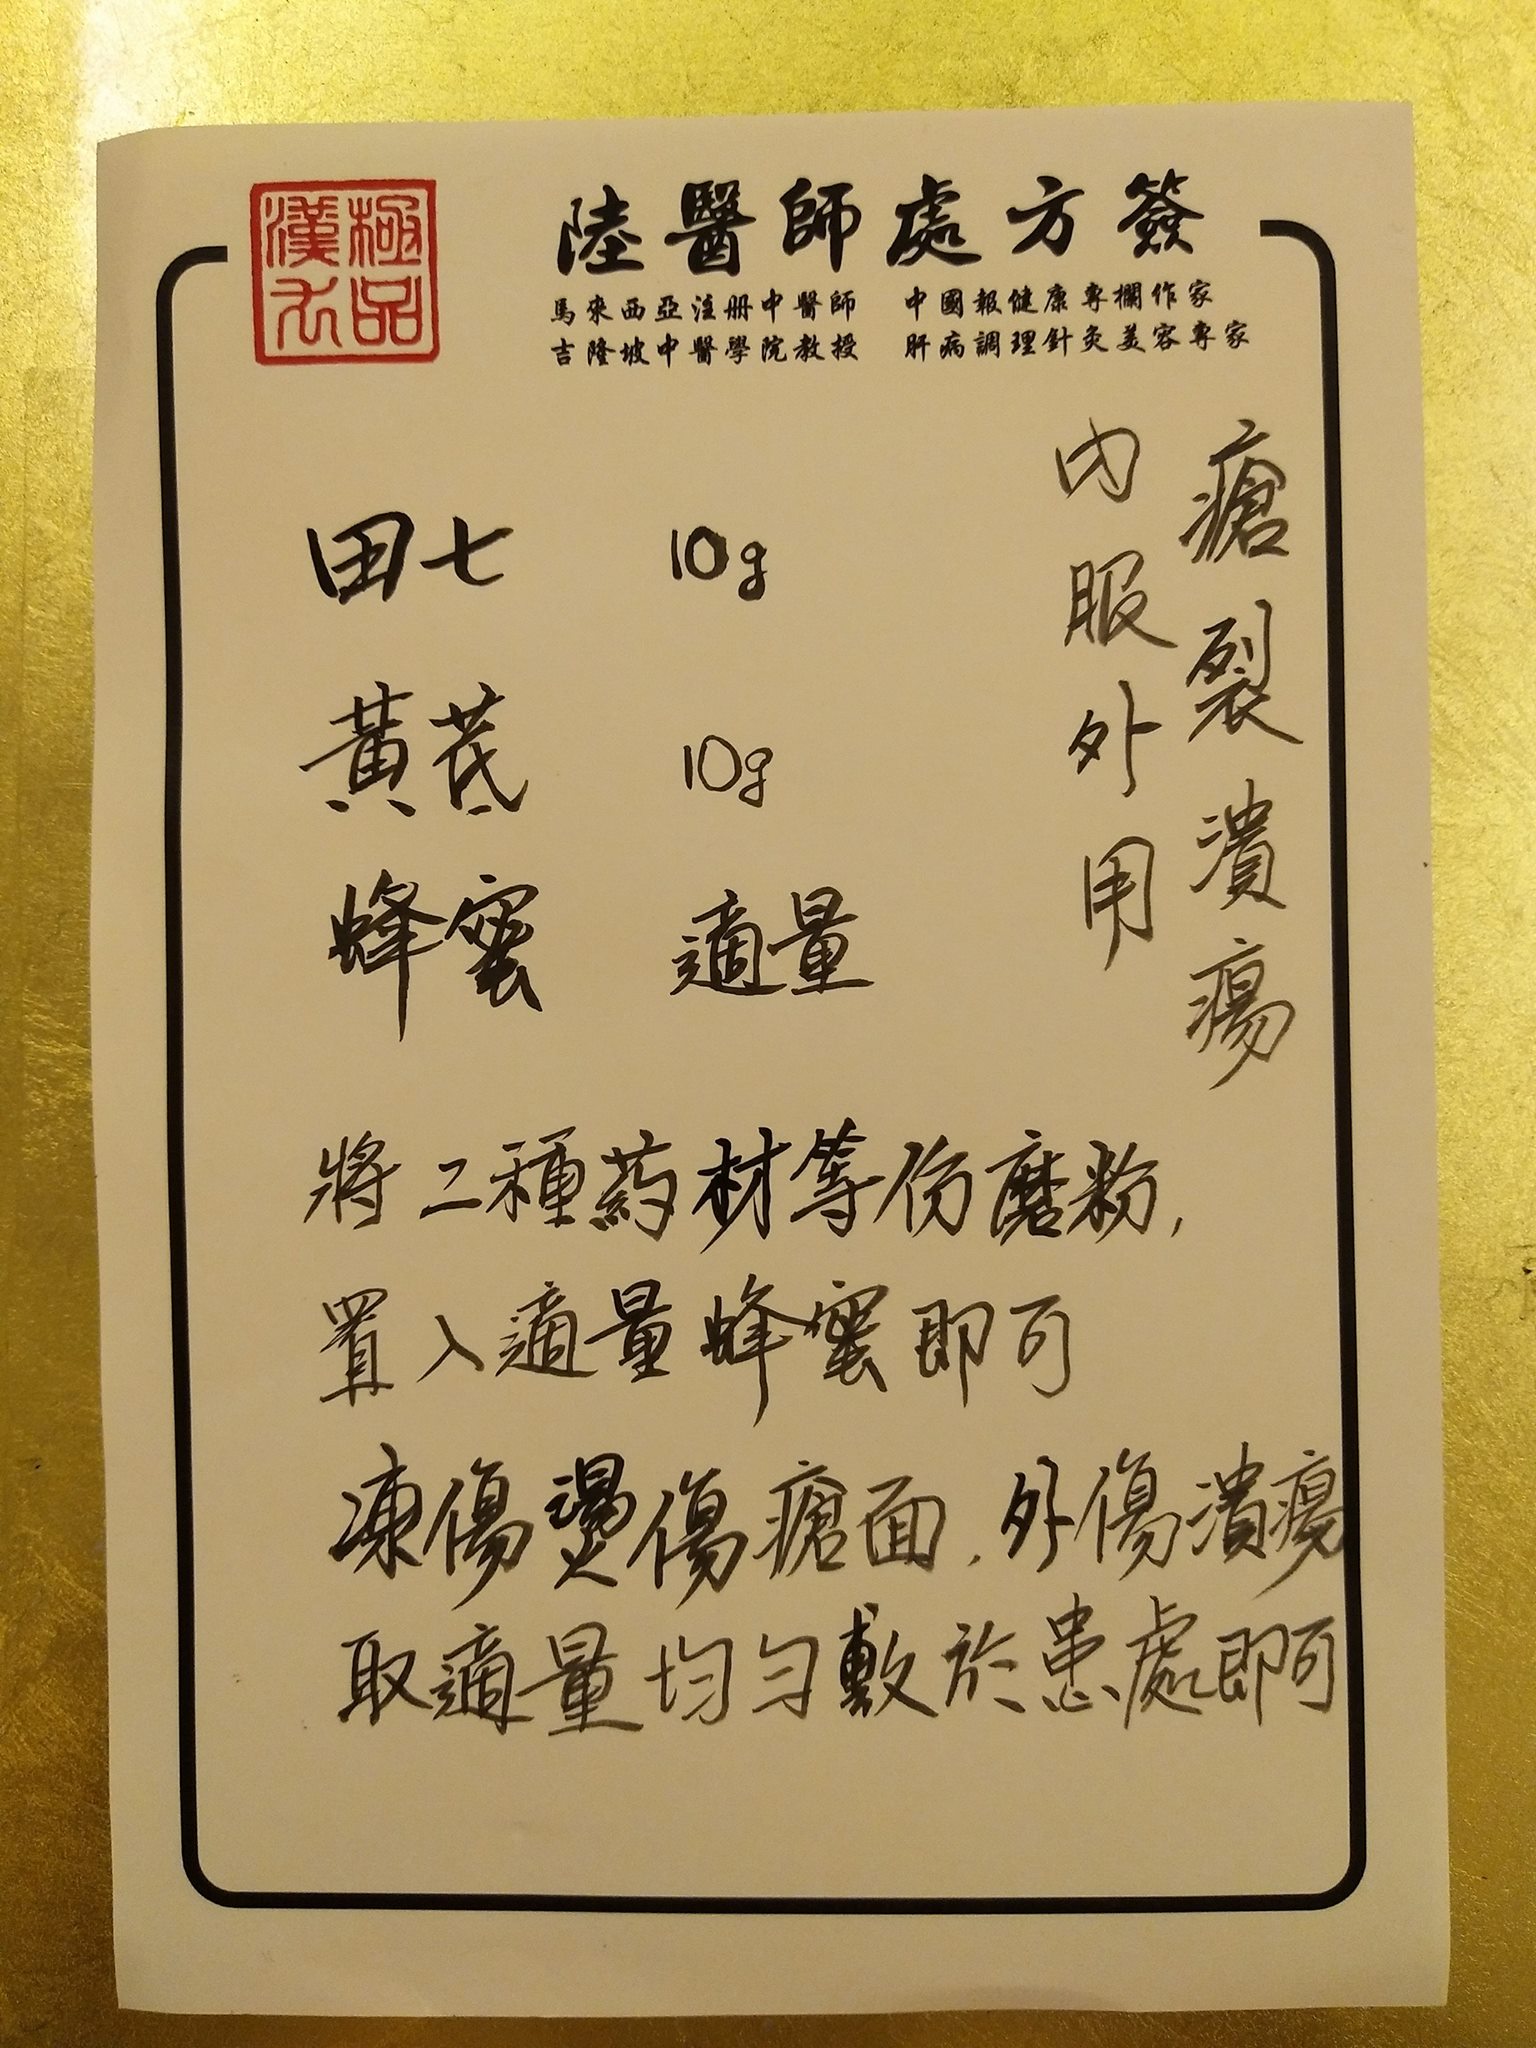 極品
漢方
陸醫師處方簽
馬來西亞注册中醫師 中國報健康專欄作家
吉隆坡中醫學院教授 肝病調理針灸美容專家
瘡裂潰瘍
內服外用
田七 10g
黃芪 10g
蜂蜜 適量
將二種药材等份磨粉,
置入適量蜂蜜即可
凍傷燙傷瘡面,外傷潰瘍
取適量均勻敷於患處即可